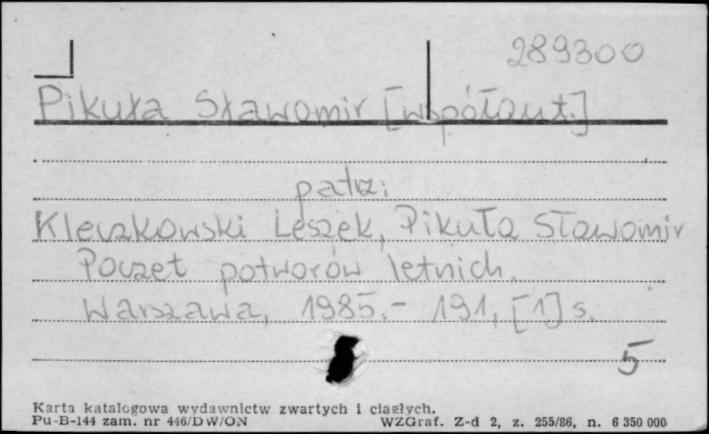 289300
Pikuła Sławomir [współaut.]
patrz:
Kleczkowski Leszek, Pikuła Sławomir
Poczet potworów letnich.
Warszawa, 1985.- 191, [1] s.
5
Karta katalogowa wydawnictw zwartych i ciągłych.
Pu-B-144 zam. nr 446/DW/ON WZGraf. Z-d 2, z. 255/86, n. 6 350 000